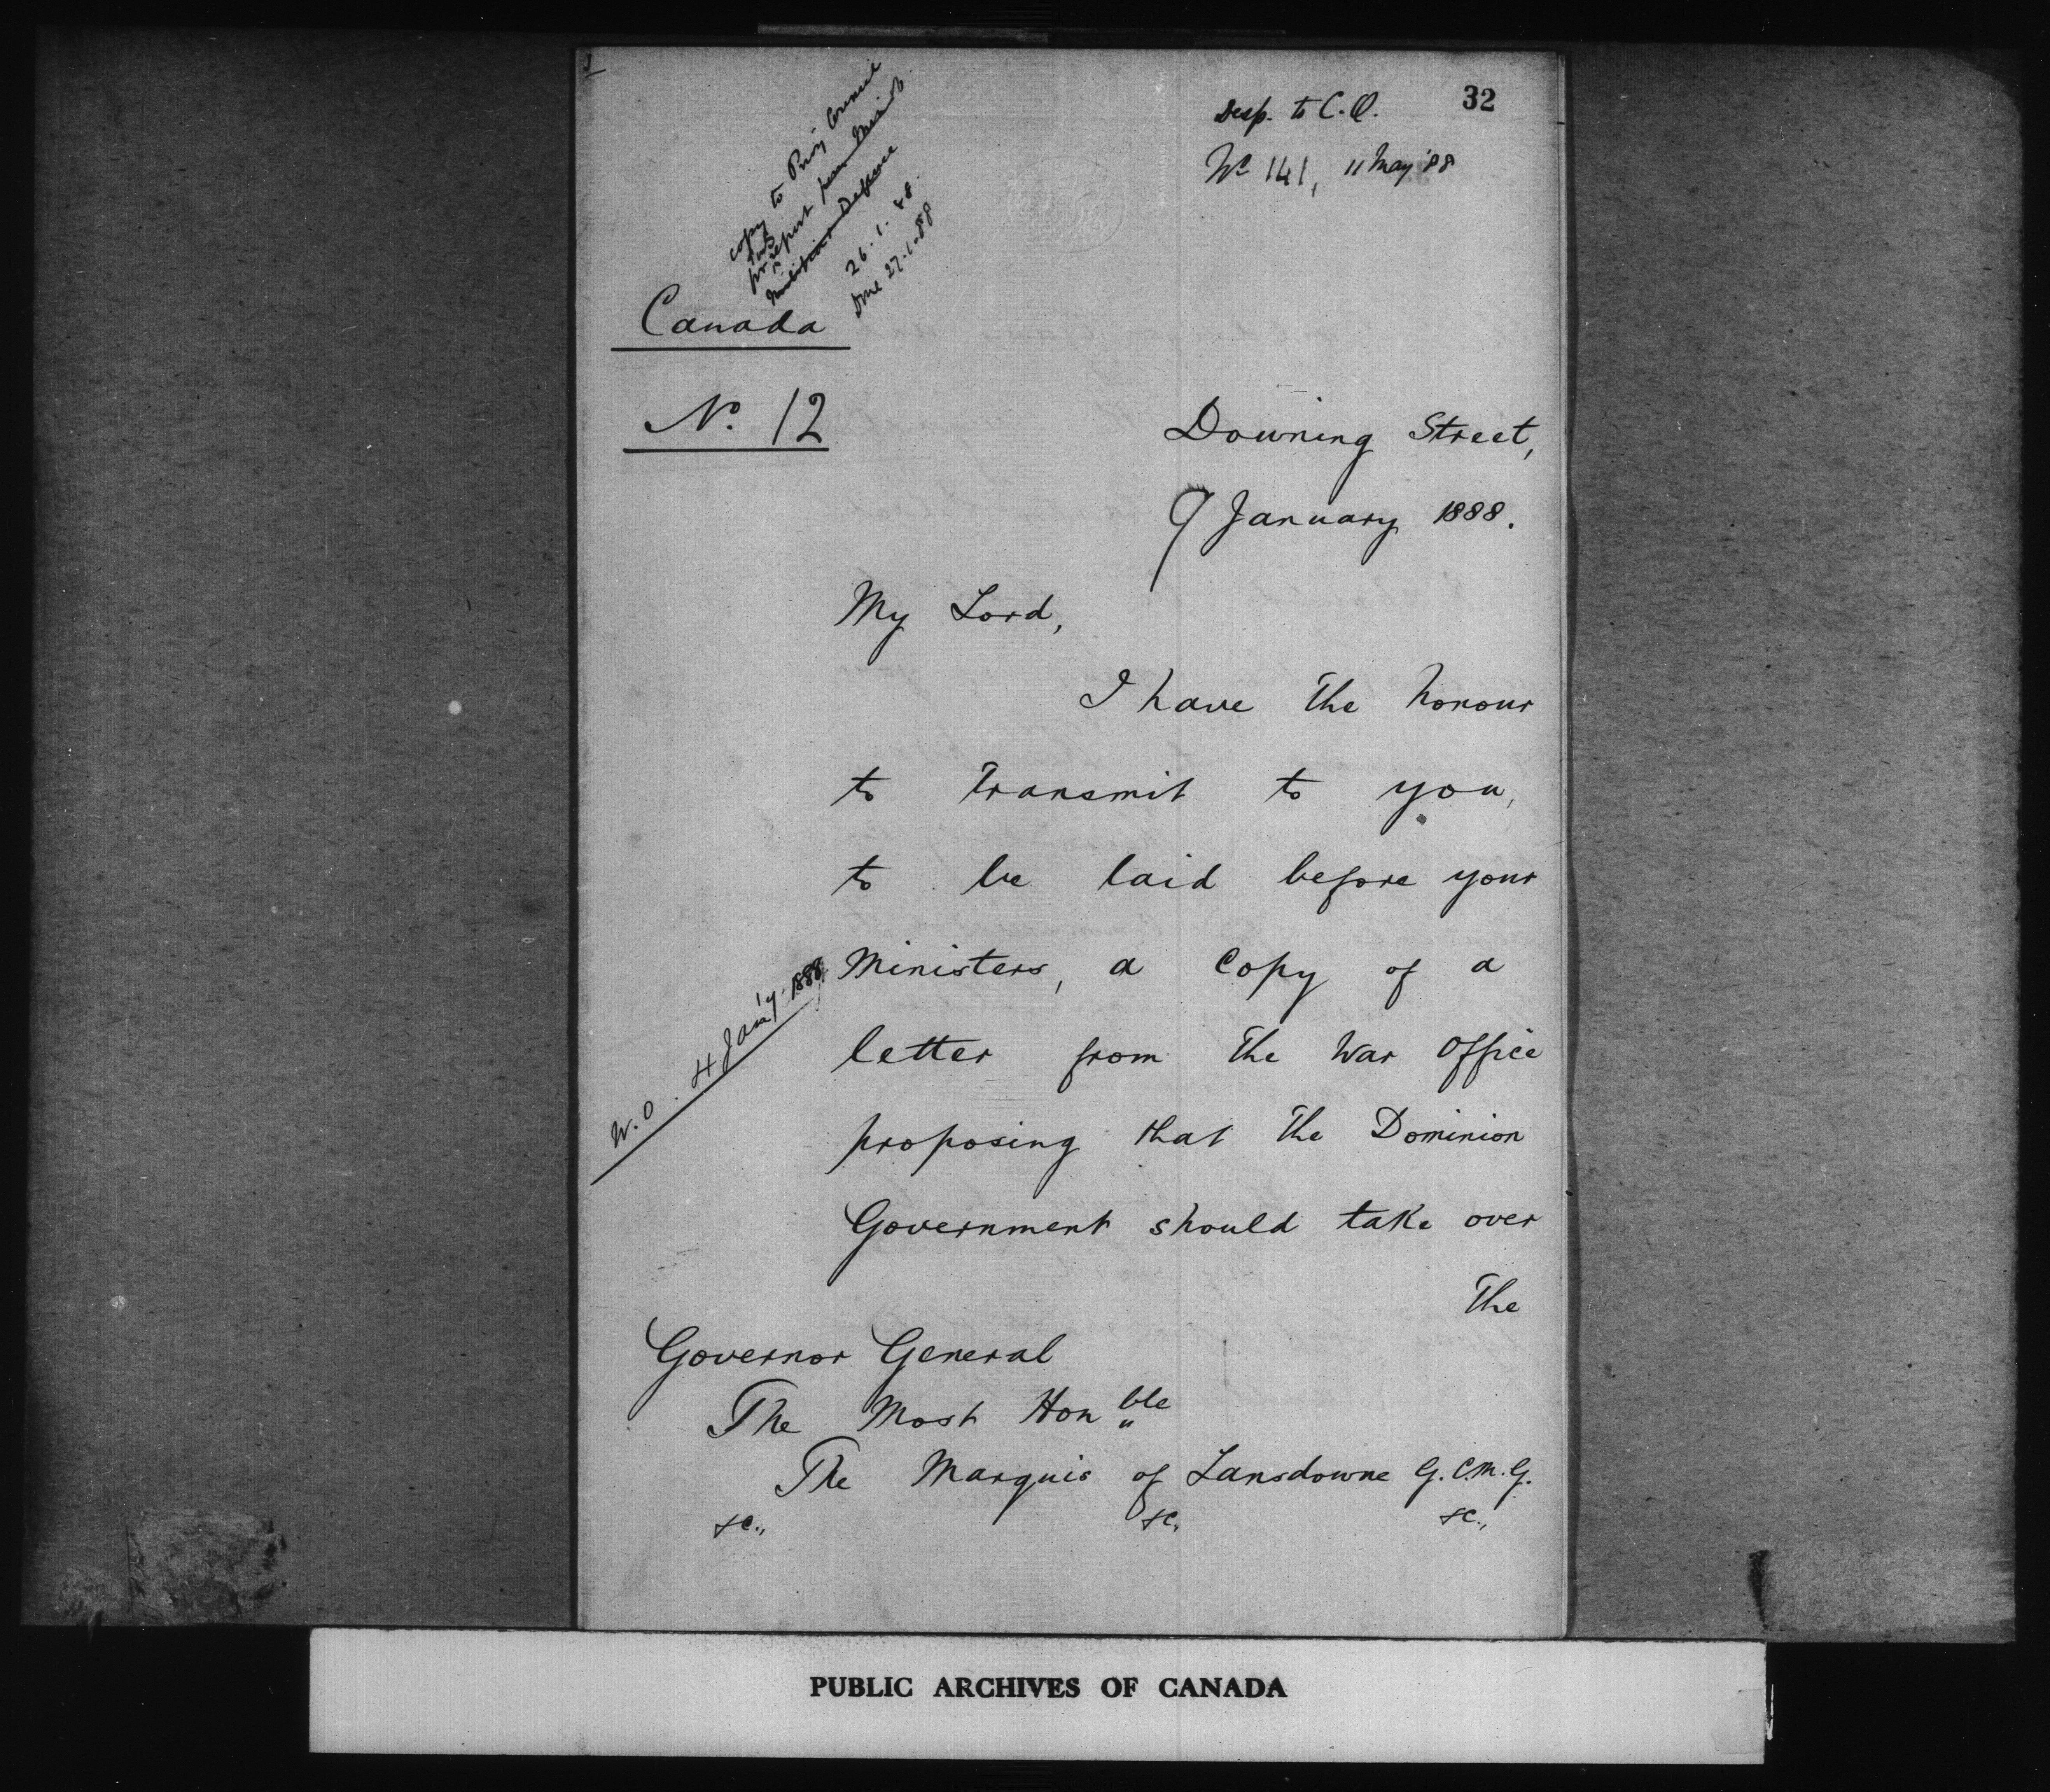 32
Desp. to C.O.
No 141, 11 May '88
copy to Privy Council
for report from Minist
Militia & Defence
26.1.88.
Done 27.1.88
Canada
No. 12
Downing Street,
9 January 1888.
My Lord,
I have the honour
to transmit to you,
to be laid before your
Ministers, a copy of a
letter from the War Office
W.O. 4 Jan'y. 1888
proposing that the Dominion
Government should take over
The
Governor General
The Most Honble
The Marquis of Lansdowne G.C.M.G.
&c., &c. &c.,
PUBLIC ARCHIVES OF CANADA